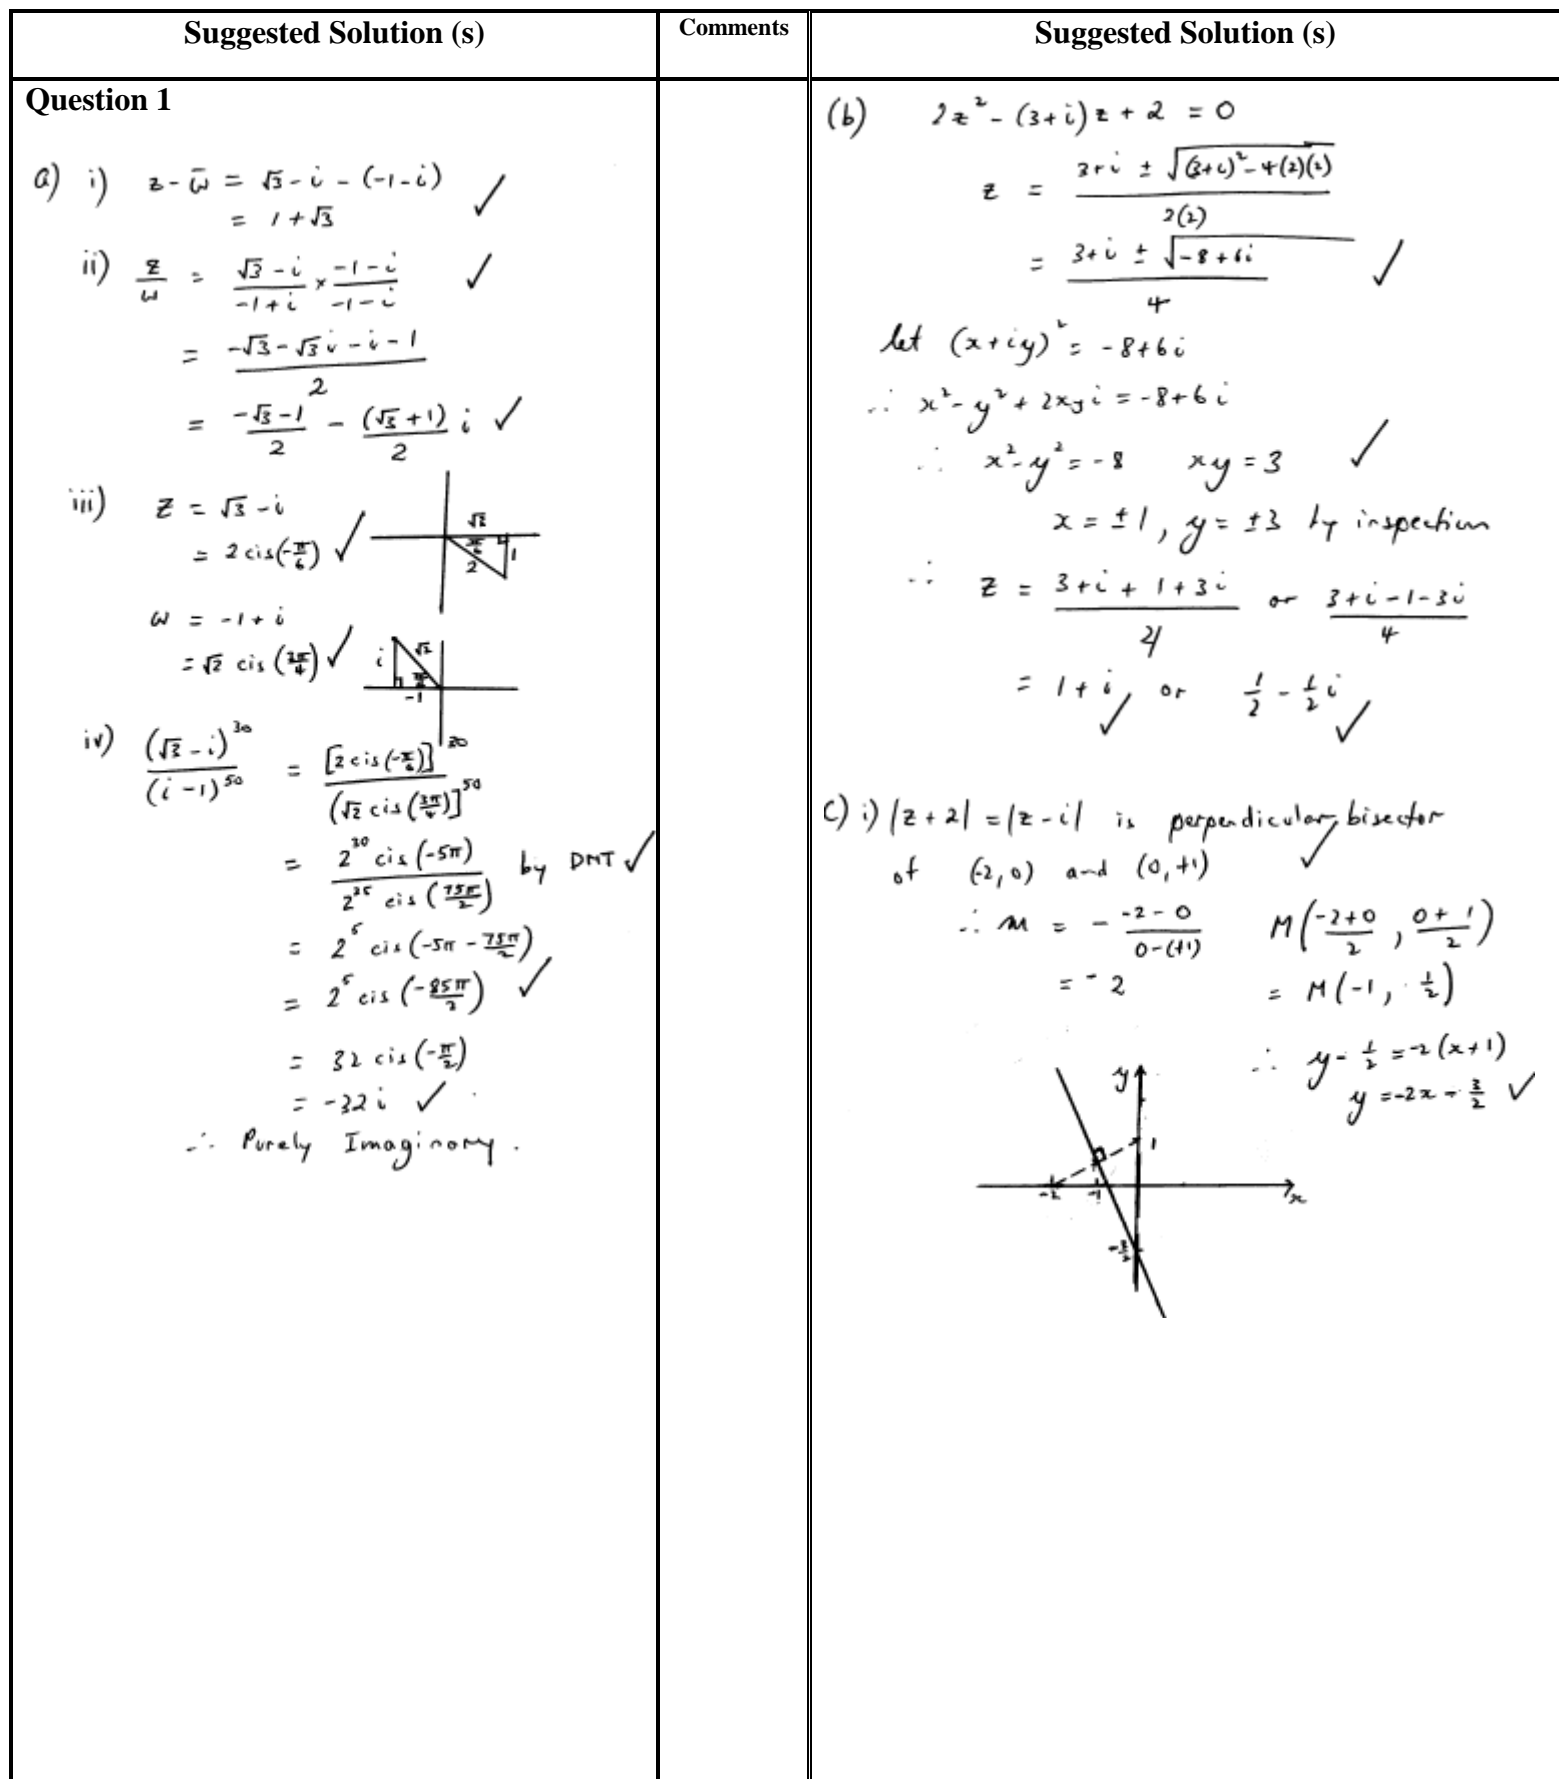 Suggested Solution (s)
Comments
Suggested Solution (s)
Question 1
a) i) z - w̄ = √3 - i - (-1 - i) ✓
= 1 + √3
ii) z/w = (√3 - i)/(-1 + i) × (-1 - i)/(-1 - i) ✓
= (-√3 - √3i - i - 1)/2
= (-√3 - 1)/2 - (√3 + 1)/2 i ✓
iii) z = √3 - i
= 2 cis(-π/6) ✓
√3
π/6
1
2
w = -1 + i
= √2 cis(3π/4) ✓
i
√2
-1
iv) (√3 - i)^30/(i - 1)^50 = [2 cis(-π/6)]^30/(√2 cis(3π/4)]^50
= 2^30 cis(-5π)/2^25 cis(75π/2) by DMT ✓
= 2^5 cis(-5π - 75π/2)
= 2^5 cis(-85π/2) ✓
= 32 cis(-π/2)
= -32i ✓
∴ Purely Imaginary.
(b) 2z² - (3+i)z + 2 = 0
z = (3+i ± √((3+i)² - 4(2)(2)))/2(2)
= (3+i ± √(-8+6i))/4 ✓
let (x+iy)² = -8+6i
∴ x² - y² + 2xyi = -8+6i
∴ x² - y² = -8 xy = 3 ✓
x = ±1, y = ±3 by inspection
∴ z = (3+i+1+3i)/4 or (3+i-1-3i)/4
= 1+i, ✓ or 1/2 - 1/2 i ✓
c) i) |z+2| = |z-i| is perpendicular bisector
of (-2,0) and (0,+1) ✓
∴ m = - (-2-0)/(0-(+1)) M((-2+0)/2, (0+1)/2)
= -2 = M(-1, 1/2)
∴ y - 1/2 = -2(x+1)
y = -2x - 3/2 ✓
y
1
-2
-1
x
-3/2